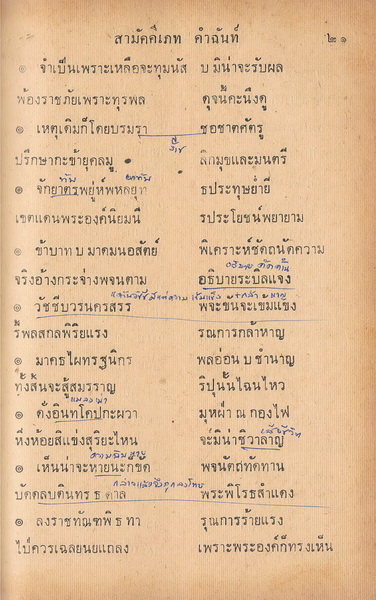 สามัคคีเภท คำฉันท์ ๒๑
๏ จำเป็นเพราะเหลือจะทุมนัส บ มิน่าจะรับผล
พ้องราชภัยเพราะทุรพล ดุจนี้คะนึงดู
๏ เหตุเดิมก็โดยบรมรา ชอชาตศัตรู
ปรึกษากะข้ายุคลมู ลิกมุขและมนตรี
๏ จักยาตรพยู่ห์พหลยุท ธประทุษย่ำยี
ทัพ
เขตแดนพระองค์นิยมนี รประโยชน์พยายาม
๏ ข้าบาท บ มาดมนอสัตย์ พิเคราะห์ชัดถนัดความ
จริงอ้างกระจ่างพจนตาม อธิบายระบิลแจง
๏ วัชชีบวรนครสรร พจะขันจะเข้มแข็ง
รี้พลสกลพิริยแรง รณการกล้าหาญ
๏ มาคธไผทรฐนิกร พลอ่อน บ ชำนาญ
ทั้งสิ้นจะสู้สมรราญ ริปุนั้นไฉนไหว
๏ ดั่งอินทโคปกะผวา มุหฝ่า ณ กองไฟ
แมลงเม่า
หิ่งห้อยสิแข่งสุริยะไหน จะมิน่าชิวาลาญ
๏ เห็นน่าจะหายนะก็ขัด พจนัตถทัดทาน
บัดดลบดินทร ธ ดาล พระพิโรธสำแดง
๏ ลงราชทัณฑพิ ธ ทา รุณการร้ายแรง
ไป่ควรเฉลยนยแถลง เพราะพระองค์ก็ทรงเห็น